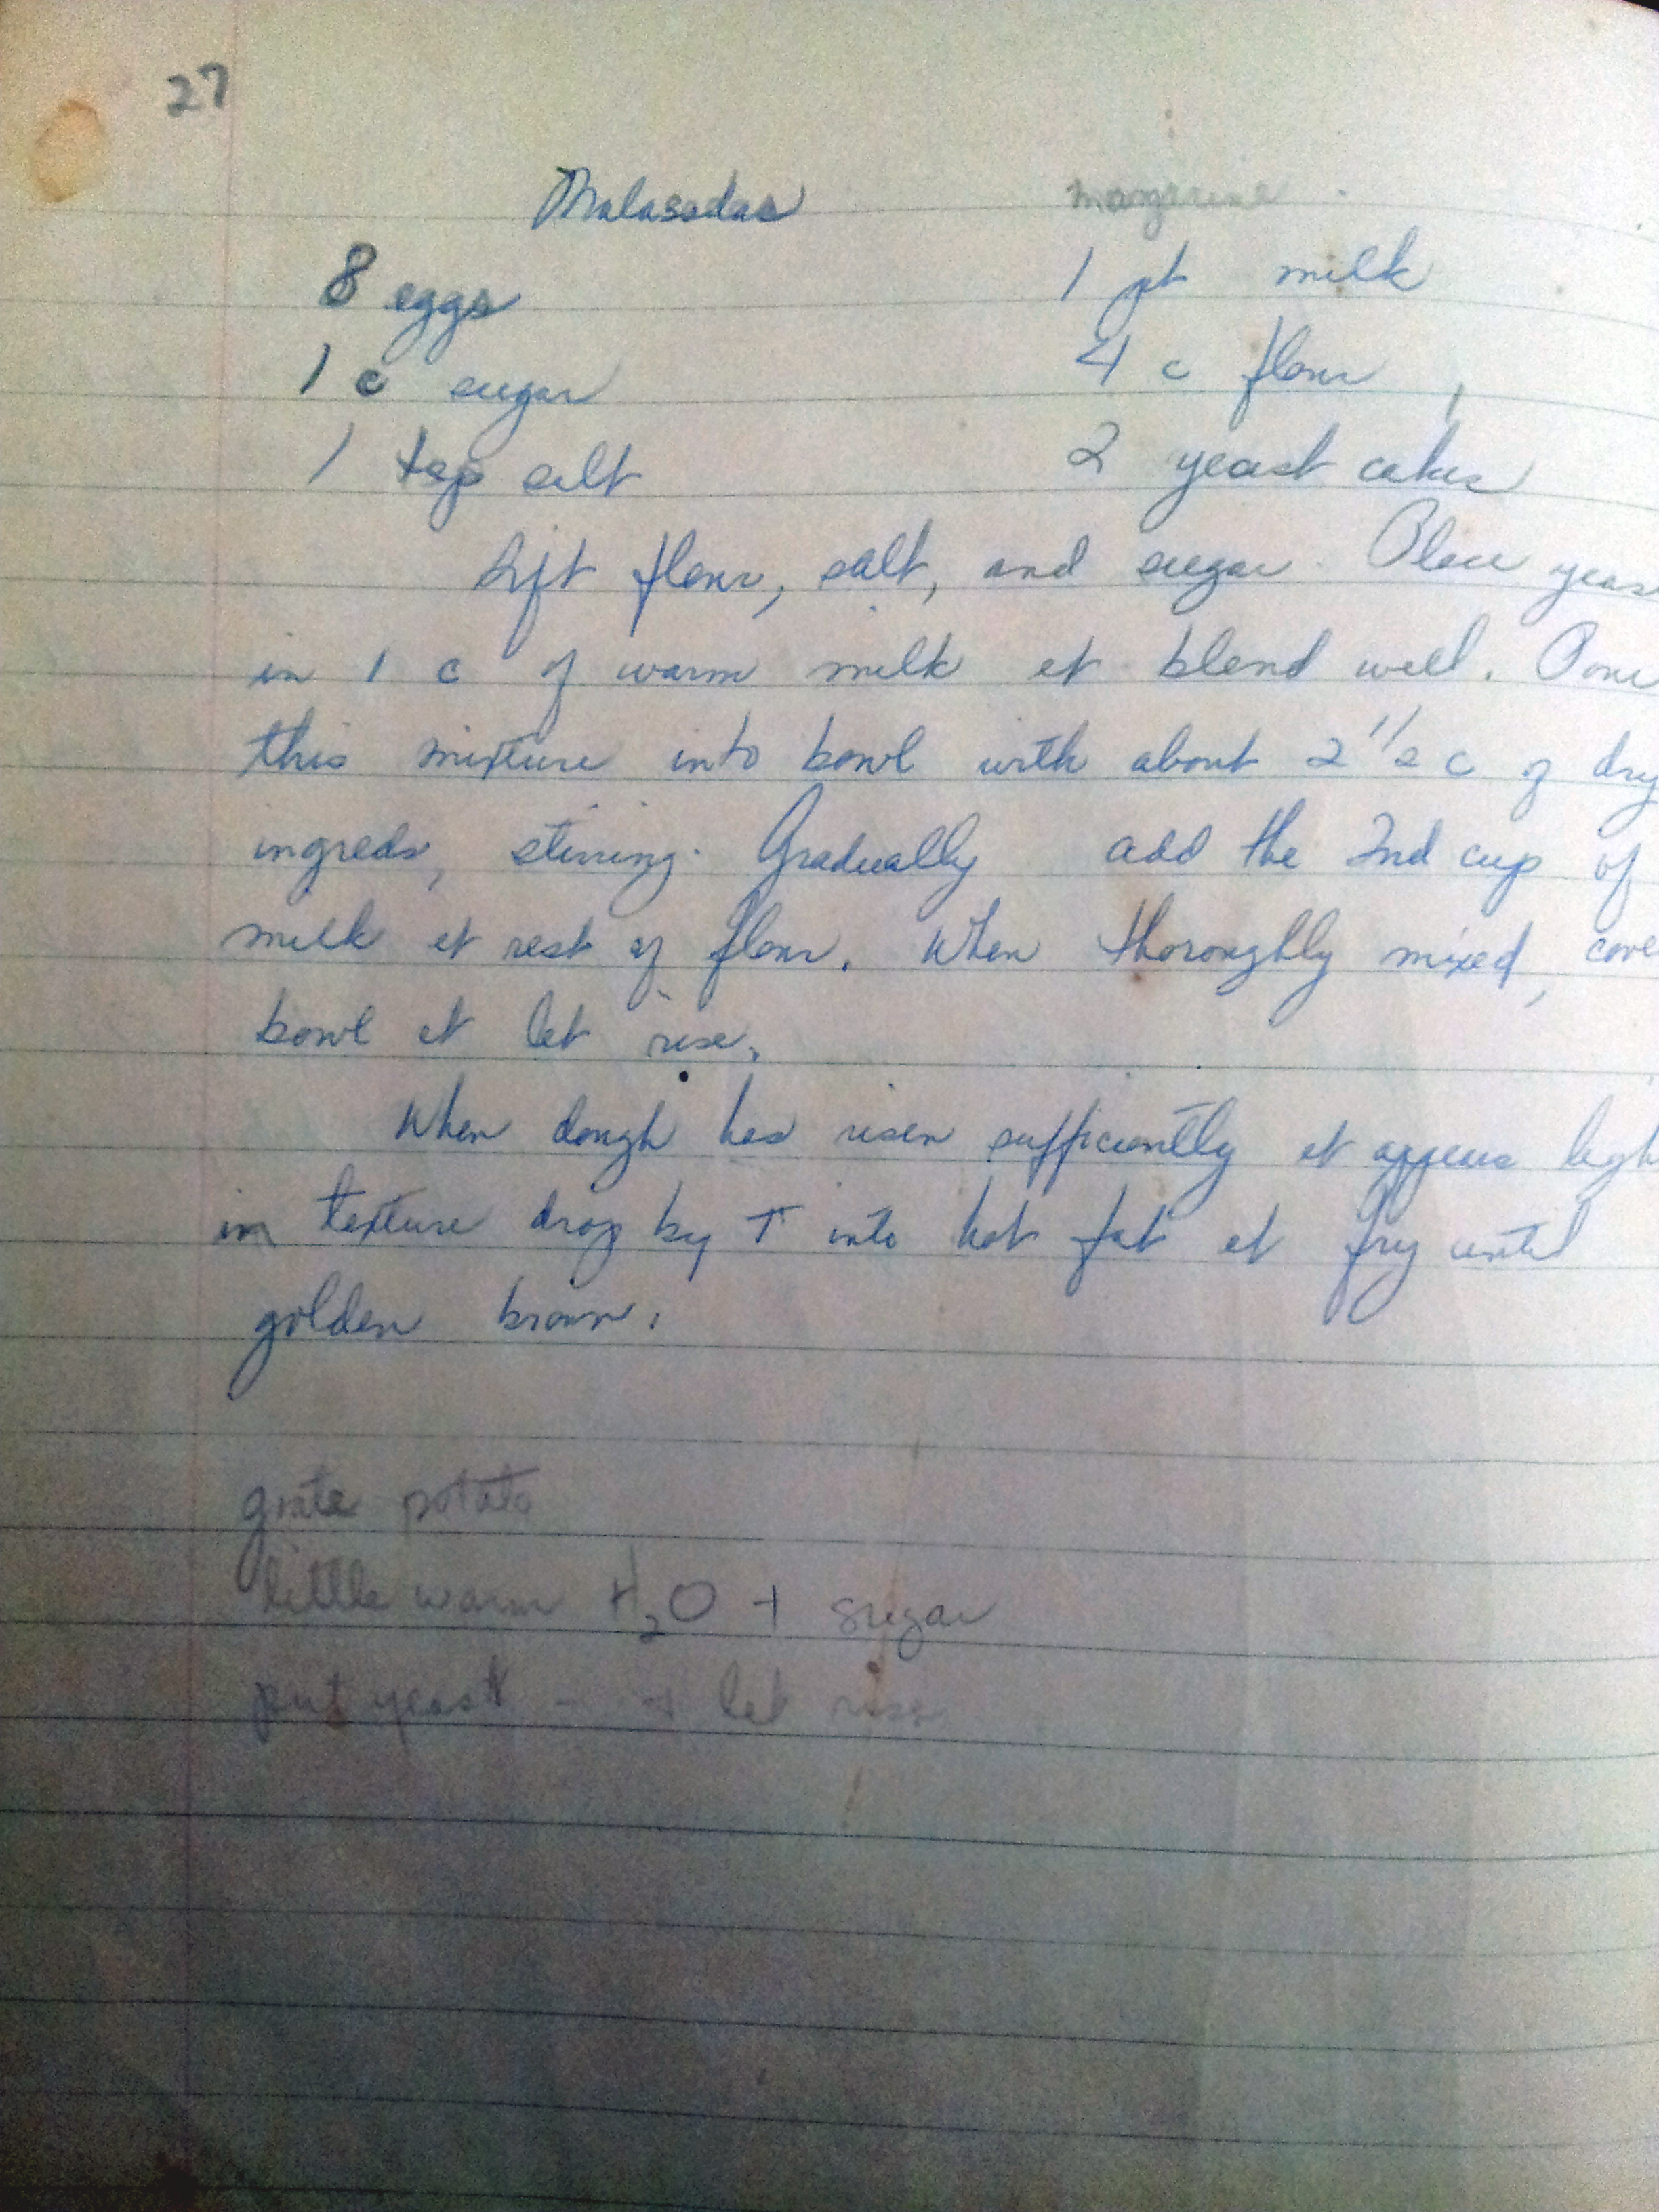 27
Malasadas margarine
8 eggs 1 pt milk
1 c sugar 4 c flour
1 tsp salt 2 yeast cakes
Sift flour, salt, and sugar. Place yeas
in 1 c of warm milk et blend well. Pour
this mixture into bowl with about 2 1/2 c of dry
ingreds, stirring. Gradually add the 2nd cup of
milk et rest of flour. When thoroughly mixed, cove
bowl et let rise.
When dough has risen sufficiently et appears ligh
in texture drop by T into hot fat et fry until
golden brown.
grate potato
little warm H₂O + sugar
put yeast - → let rise